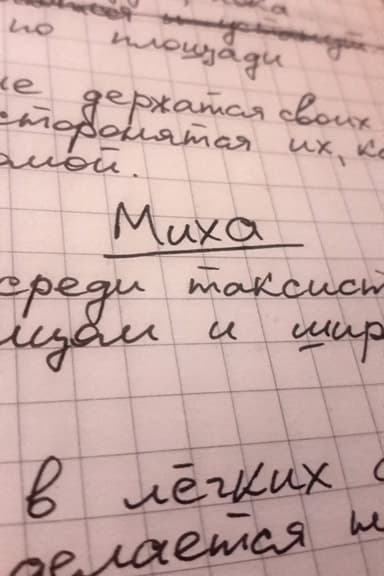 по площади
не держатся своих
сторонятся их, ка
амой.
Миха
среди таксист
ицам и шир
в лёгких с
делается ш